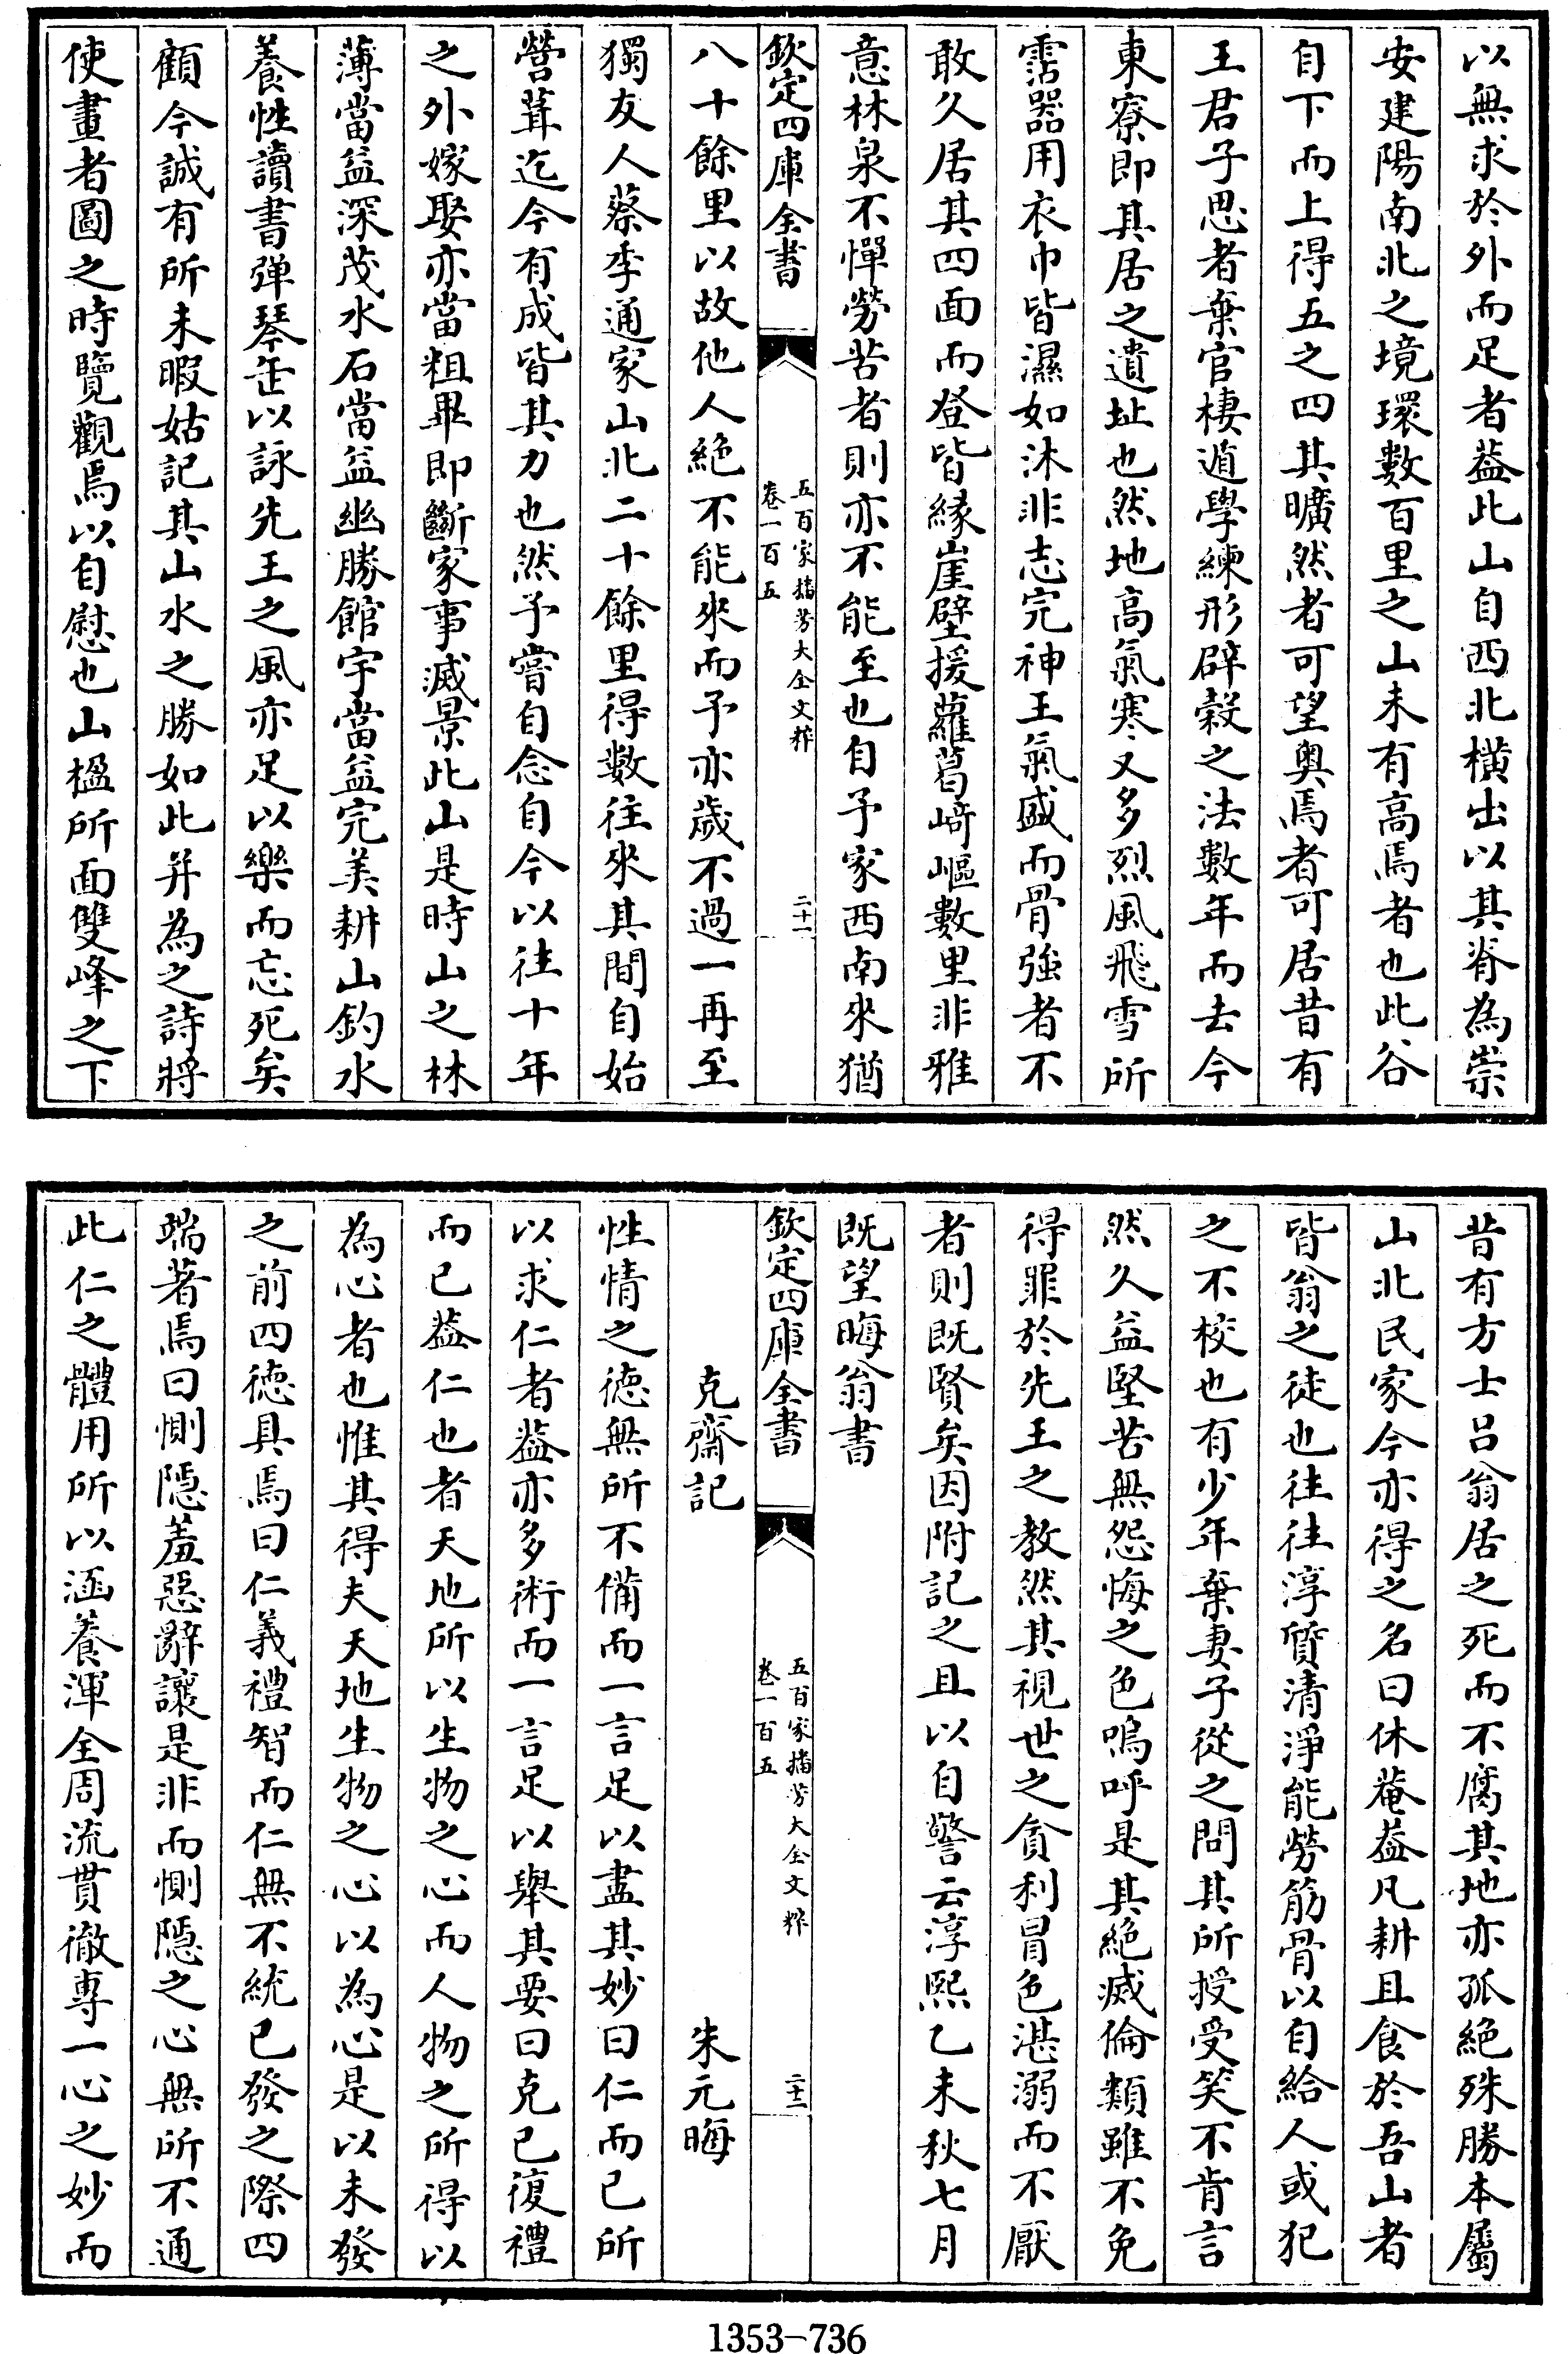 以無求於外而足者葢此山自西北橫出以其脊為崇
安建陽南北之境環數百里之山未有高焉者也此谷
自下而上得五之四其曠然者可望奥焉者可居昔有
王君子思者棄官棲遁學練形辟穀之法數年而去今
東寮即其居之遺址也然地高氣寒又多烈風飛雪所
霑器用衣巾皆濕如沐非志完神王氣盛而骨強者不
敢久居其四面而登皆緣崖壁援蘿葛﨑嶇數里非雅
意林泉不憚勞苦者則亦不能至也自予家西南來猶
欽定四庫全書
五百家播芳大全文粹
卷一百五
二十一
八十餘里以故他人絶不能來而予亦歲不過一再至
獨友人蔡季通家山北二十餘里得數往來其間自始
營葺迄今有成皆其力也然予嘗自念自今以往十年
之外嫁娶亦當粗畢即斷家事滅景此山是時山之林
薄當益深茂水石當益幽勝館宇當益完美耕山釣水
養性讀書彈琴缶以詠先王之風亦足以樂而忘死矣
顧今誠有所未暇姑記其山水之勝如此并為之詩將
使畫者圖之時覽觀焉以自慰也山楹所面雙峰之下
昔有方士吕翁居之死而不腐其地亦孤絶殊勝本屬
山北民家今亦得之名曰休菴葢凡耕且食於吾山者
皆翁之徒也往往淳質清淨能勞筋骨以自給人或犯
之不校也有少年棄妻子從之問其所授受笑不肯言
然久益堅苦無怨悔之色嗚呼是其絶滅倫類雖不免
得罪於先王之教然其視世之貪利冒色湛溺而不厭
者則既賢矣因附記之且以自警云淳熙乙未秋七月
既望晦翁書
欽定四庫全書
五百家播芳大全文粹
卷一百五
二十二
克齋記　朱元晦
性情之徳無所不備而一言足以盡其妙曰仁而已所
以求仁者葢亦多術而一言足以舉其要曰克已復禮
而已葢仁也者天地所以生物之心而人物之所得以
為心者也惟其得夫天地生物之心以為心是以未發
之前四徳具焉曰仁義禮智而仁無不統已發之際四
端著焉曰惻隠羞惡辭讓是非而惻隠之心無所不通
此仁之體用所以涵養渾全周流貫徹專一心之妙而
1353-736